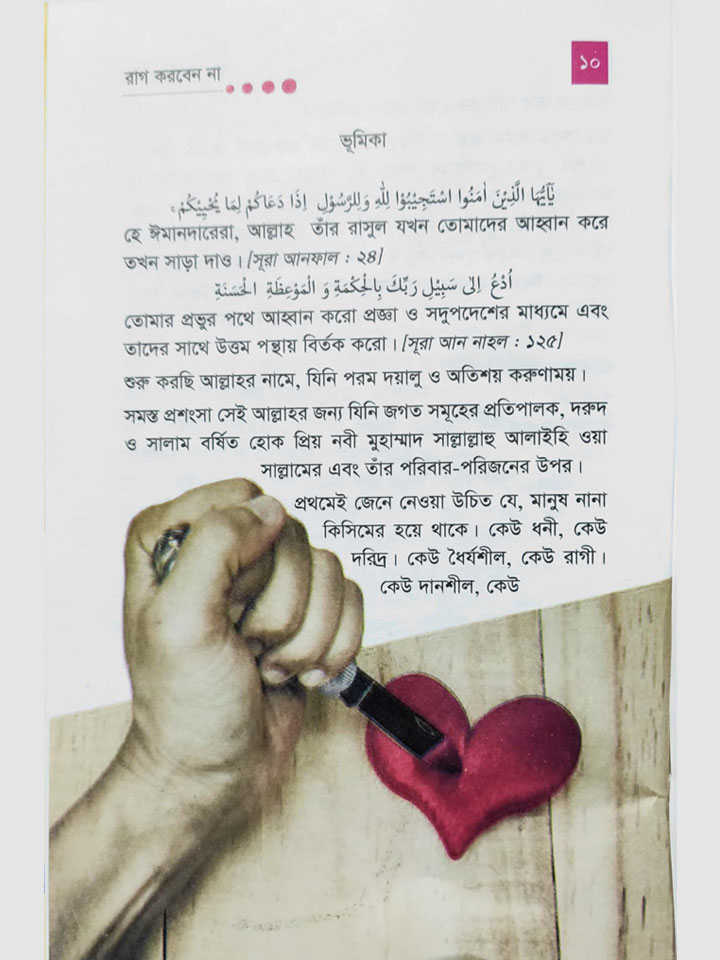 রাগ করবেন না
১০
ভূমিকা
يٰٓاَيُّهَا الَّذِيْنَ اٰمَنُوا اسْتَجِيْبُوْا لِلّٰهِ وَلِلرَّسُوْلِ اِذَا دَعَاكُمْ لِمَا يُحْيِيْكُمْ ۚ
হে ঈমানদারেরা, আল্লাহ তাঁর রাসুল যখন তোমাদের আহ্বান করে
তখন সাড়া দাও। [সূরা আনফাল : ২৪]
اُدْعُ اِلٰى سَبِيْلِ رَبِّكَ بِالْحِكْمَةِ وَ الْمَوْعِظَةِ الْحَسَنَةِ
তোমার প্রভুর পথে আহ্বান করো প্রজ্ঞা ও সদুপদেশের মাধ্যমে এবং
তাদের সাথে উত্তম পন্থায় বির্তক করো। [সূরা আন নাহল : ১২৫]
শুরু করছি আল্লাহর নামে, যিনি পরম দয়ালু ও অতিশয় করুণাময়।
সমস্ত প্রশংসা সেই আল্লাহর জন্য যিনি জগত সমূহের প্রতিপালক, দরুদ
ও সালাম বর্ষিত হোক প্রিয় নবী মুহাম্মাদ সাল্লাল্লাহু আলাইহি ওয়া
সাল্লামের এবং তাঁর পরিবার-পরিজনের উপর।
প্রথমেই জেনে নেওয়া উচিত যে, মানুষ নানা
কিসিমের হয়ে থাকে। কেউ ধনী, কেউ
দরিদ্র। কেউ ধৈর্যশীল, কেউ রাগী।
কেউ দানশীল, কেউ